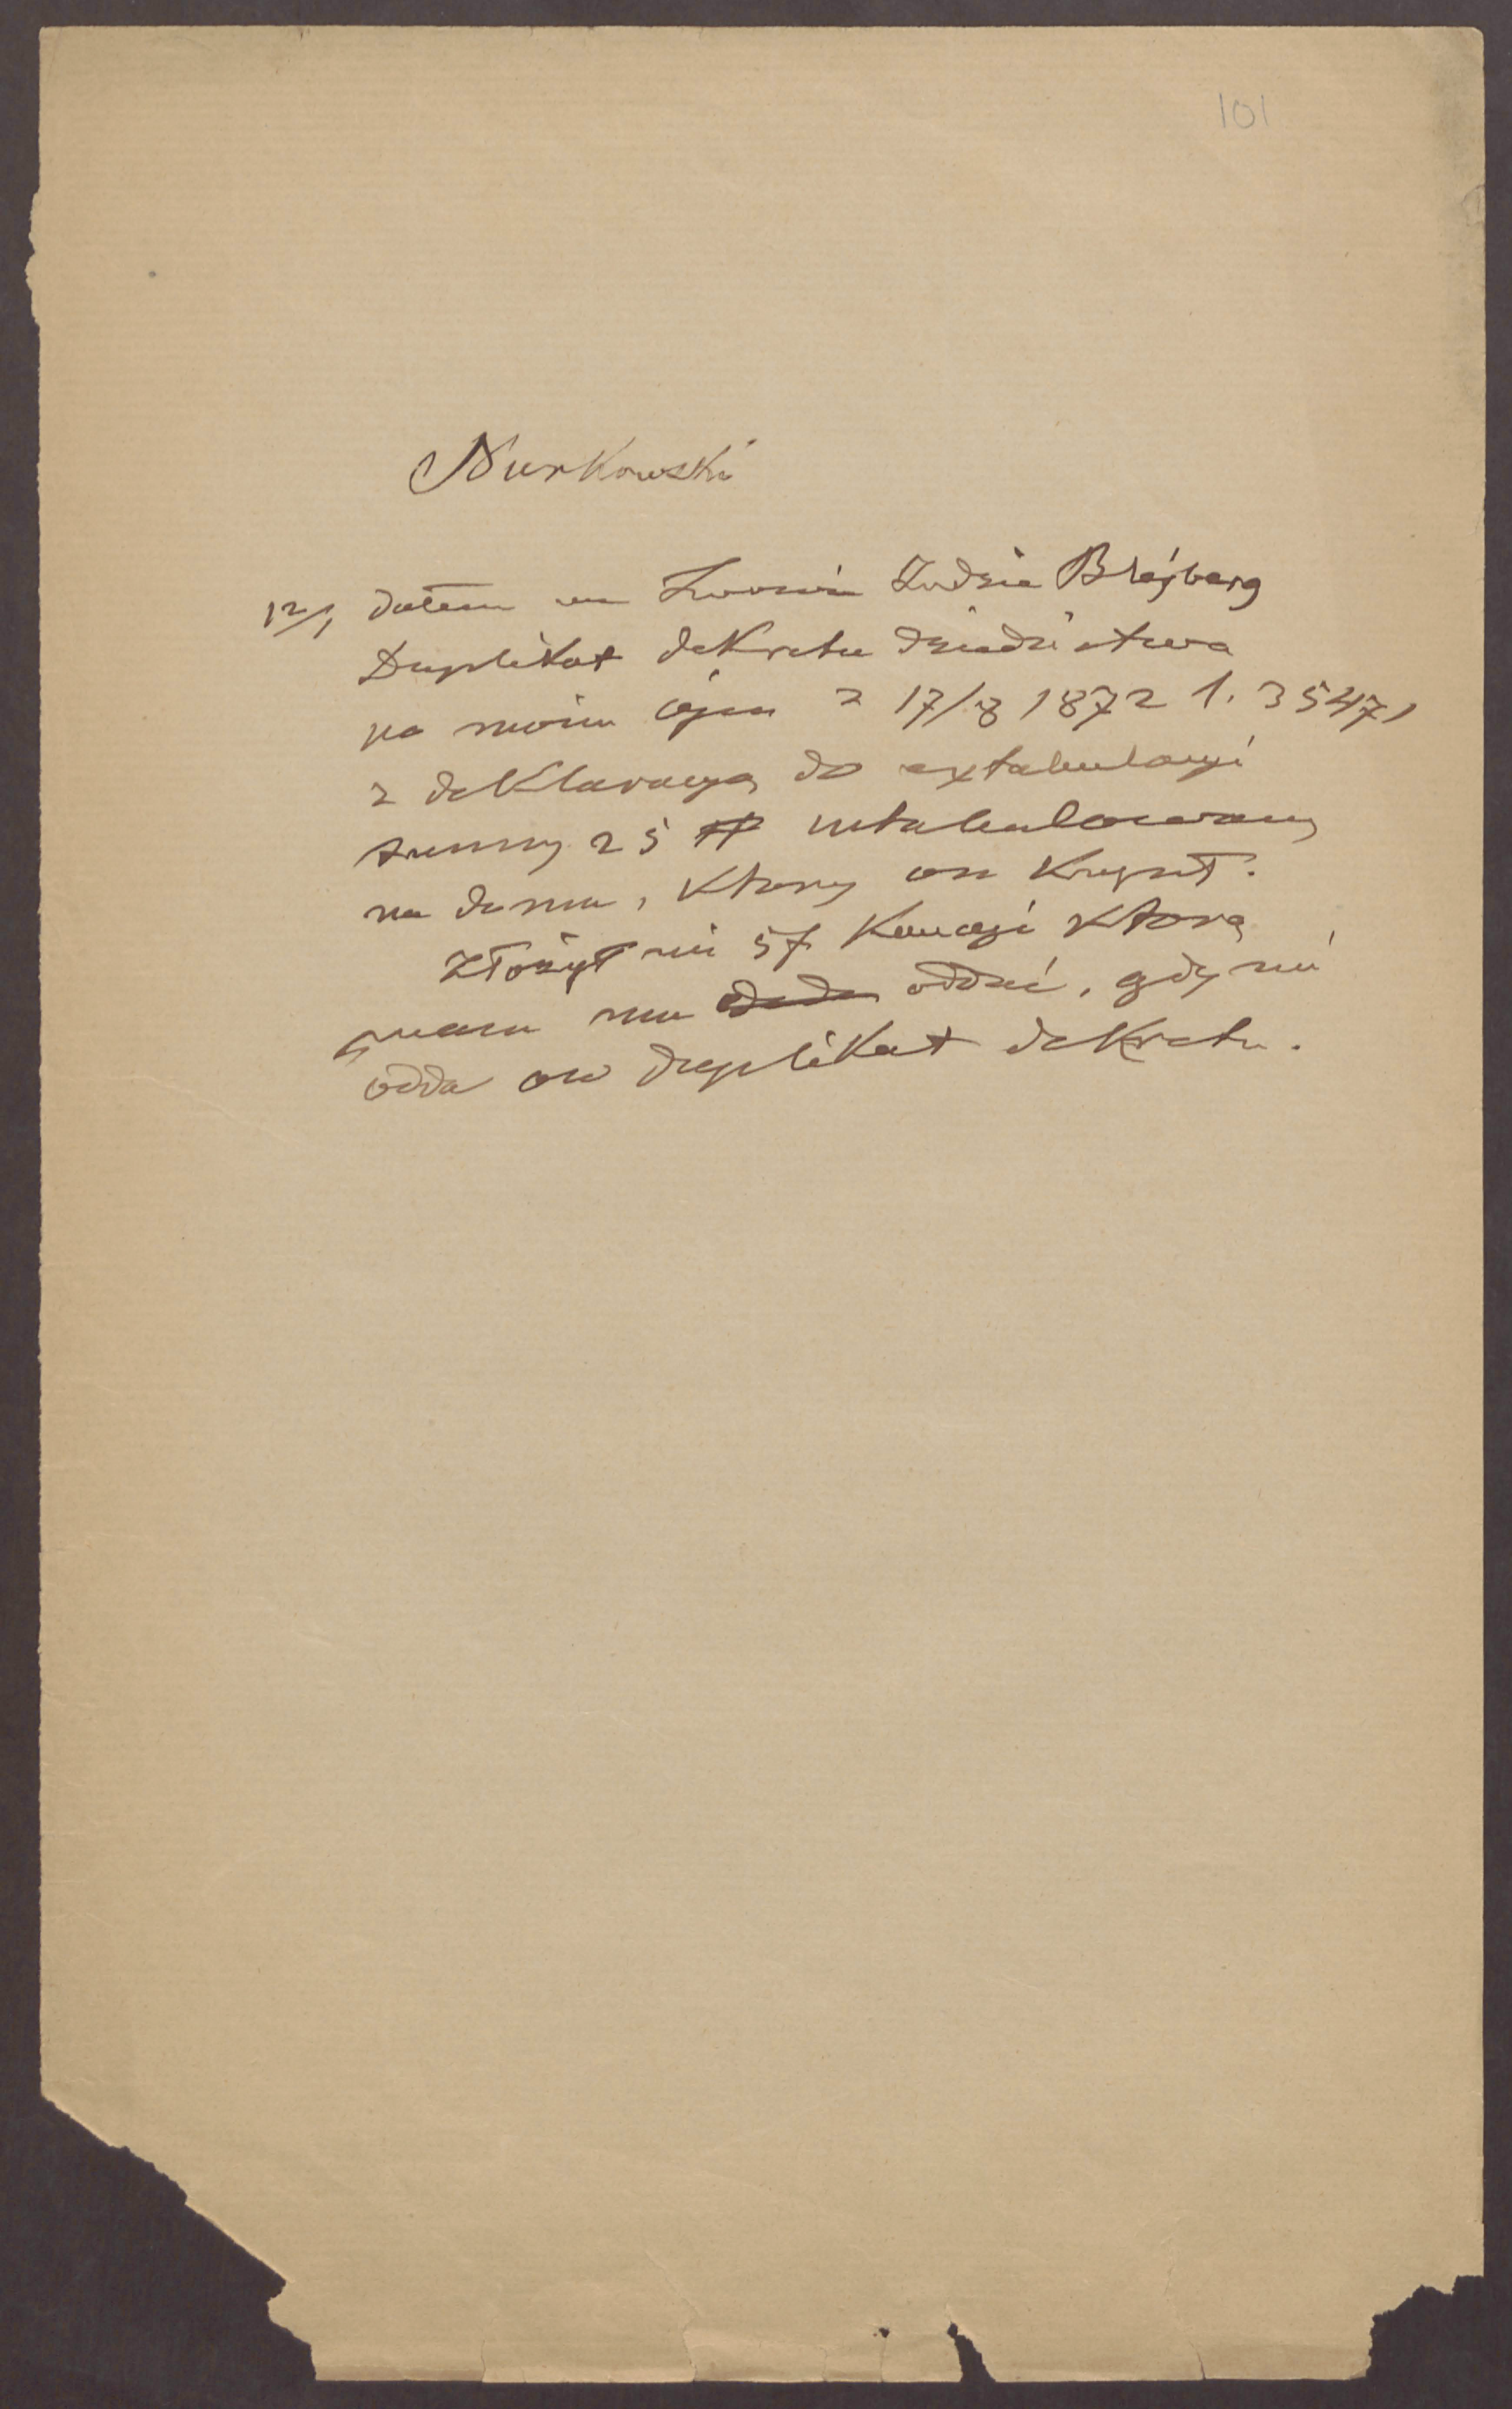 101
Nurkowski
12/1 dałem we Lwowie Judzie Blejberg
Duplikat dekretu dziedzictwa
po moim ojcu z 17/8 1872 l. 35471
z deklaracyą do extabulacyi
summy 25 # intabulowany
na domu, ktory on Kupił.
Złożył mi 5f Kaucyi ktorą
mam mu oddać, gdy mi
odda ow duplikat dekretu.